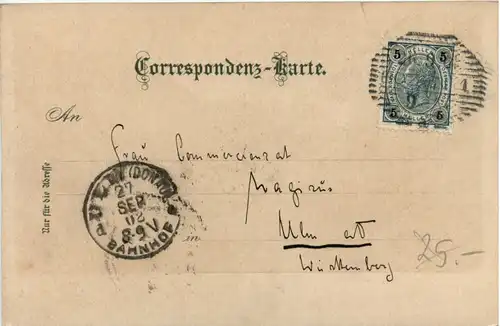 Correspondenz-Karte.
5 HELLER 5
5 5
1
An
Nur für die Adresse
Frau Commerzienrat
Magirus
Ulm a/D
Württemberg
ULM (DONAU)
27
SEP
02
8-9 V
BAHNHOF
in
25.-